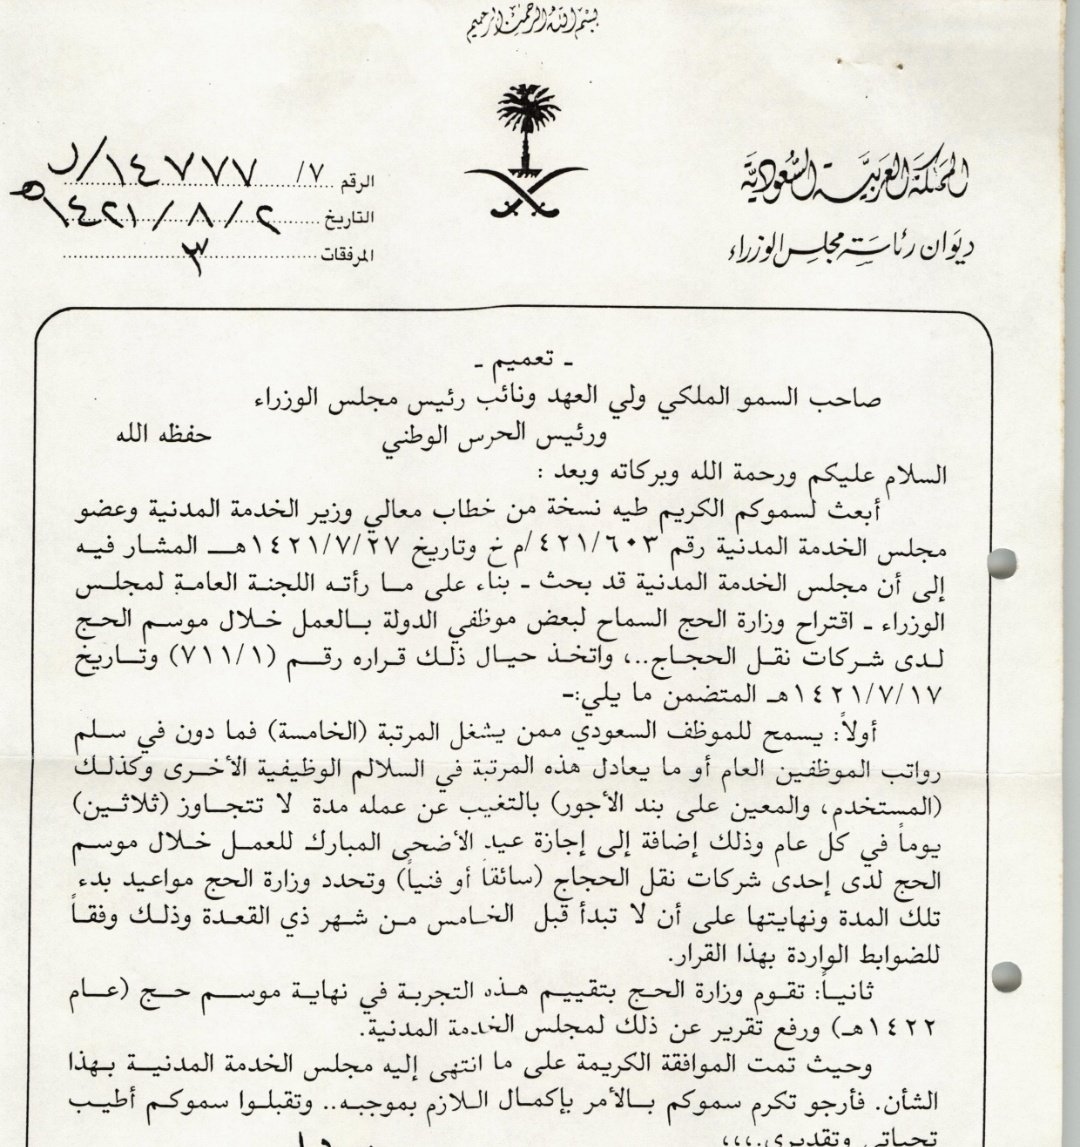 بسم الله الرحمن الرحيم
المملكة العربية السعودية
ديوان رئاسة مجلس الوزراء
الرقم ٧/ ١٤٧٧٧/ر
التاريخ ١٤٢١/٨/٢ هـ
المرفقات ٣
ـ تعميم ـ
صاحب السمو الملكي ولي العهد ونائب رئيس مجلس الوزراء
ورئيس الحرس الوطني حفظه الله
السلام عليكم ورحمة الله وبركاته وبعد :
أبعث لسموكم الكريم طيه نسخة من خطاب معالي وزير الخدمة المدنية وعضو
مجلس الخدمة المدنية رقم ٤٢١/٦٠٣/م خ وتاريخ ١٤٢١/٧/٢٧هـ المشار فيه
إلى أن مجلس الخدمة المدنية قد بحث ـ بناء على ما رأته اللجنة العامة لمجلس
الوزراء ـ اقتراح وزارة الحج السماح لبعض موظفي الدولة بالعمل خلال موسم الحج
لدى شركات نقل الحجاج..، واتخذ حيال ذلك قراره رقم (٧١١/١) وتاريخ
١٤٢١/٧/١٧هـ المتضمن ما يلي:-
أولاً: يسمح للموظف السعودي ممن يشغل المرتبة (الخامسة) فما دون في سلم
رواتب الموظفين العام أو ما يعادل هذه المرتبة في السلالم الوظيفية الأخرى وكذلك
(المستخدم، والمعين على بند الأجور) بالتغيب عن عمله مدة لا تتجاوز (ثلاثين)
يوماً في كل عام وذلك إضافة إلى إجازة عيد الأضحى المبارك للعمل خلال موسم
الحج لدى إحدى شركات نقل الحجاج (سائقاً أو فنياً) وتحدد وزارة الحج مواعيد بدء
تلك المدة ونهايتها على أن لا تبدأ قبل الخامس من شهر ذي القعدة وذلك وفقاً
للضوابط الواردة بهذا القرار.
ثانياً: تقوم وزارة الحج بتقييم هذه التجربة في نهاية موسم حج (عام
١٤٢٢هـ) ورفع تقرير عن ذلك لمجلس الخدمة المدنية.
وحيث تمت الموافقة الكريمة على ما انتهى إليه مجلس الخدمة المدنية بهذا
الشأن. فأرجو تكرم سموكم بالأمر بإكمال اللازم بموجبه.. وتقبلوا سموكم أطيب
تحياتي وتقديري.،،،